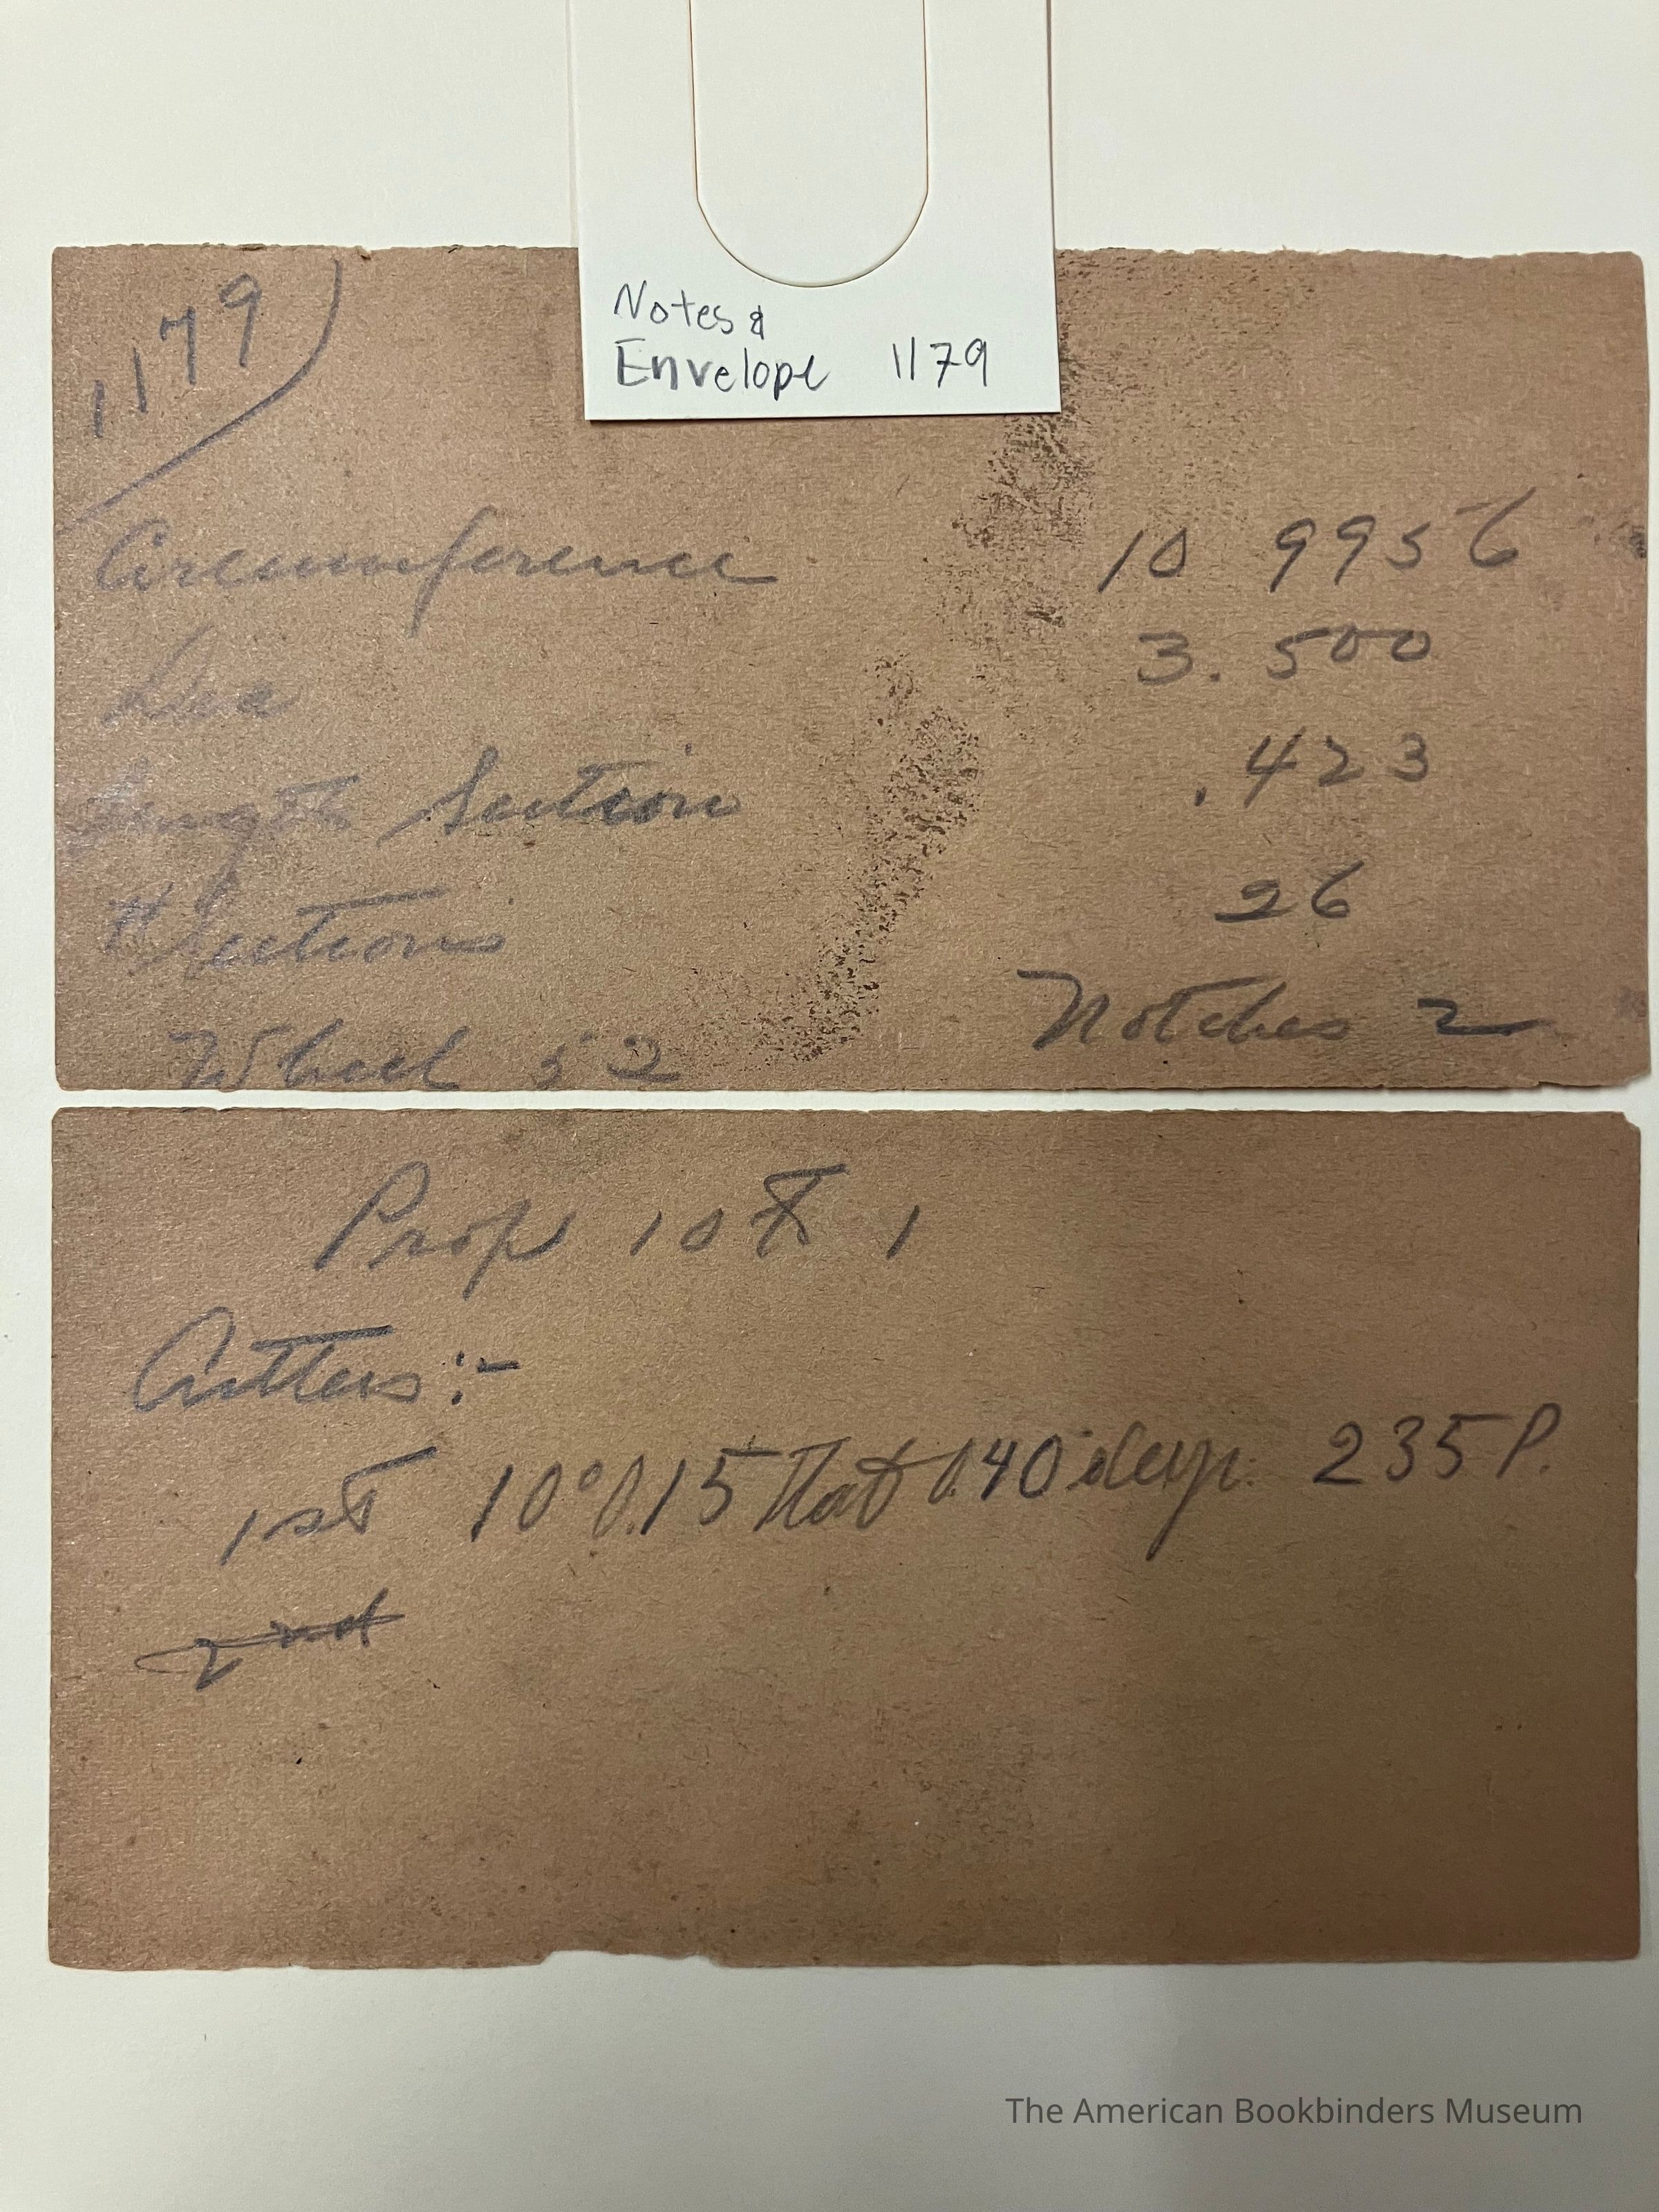 Notes &
Envelope 1179
1179
Circumference 10 9956
Dia 3.500
Length Section .423
# Sections 26
Wheel 52 Notches 2
Prop 10 to 1
Cutters:-
1st 10° 0.15 flat 0.40 deep. 235 P.
2nd
The American Bookbinders Museum